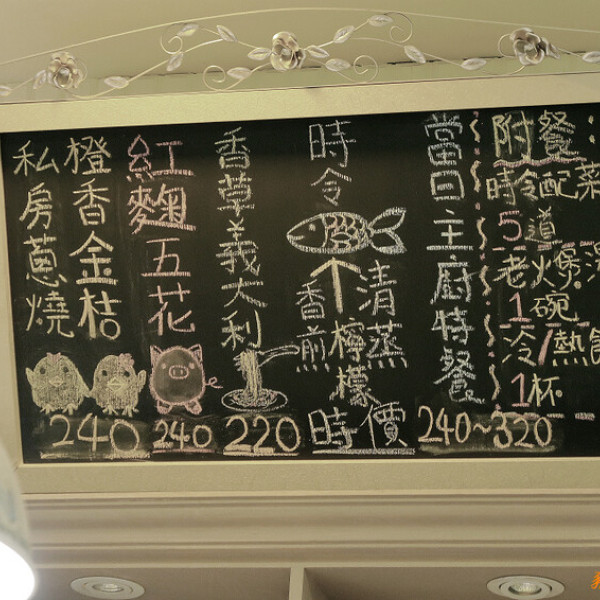 附餐：
時令配菜
5道
老火煲
1碗
冷/熱
1杯
當日主廚特餐
240~320
時令
清蒸
檸檬
香煎
時價
香草義大利
220
紅麴五花
240
橙香金桔
私房蔥燒
240